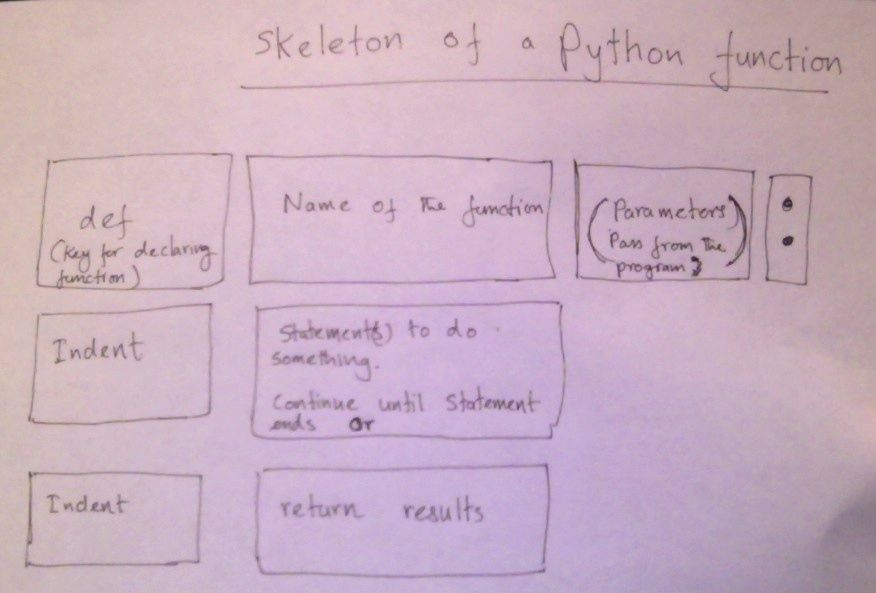 Skeleton of a Python function
def
(Key for declaring
function)
Name of the function
(Parameters)
Pass from the
program
:
Indent
Statement(s) to do
something.
Continue until Statement
ends or
Indent
return results